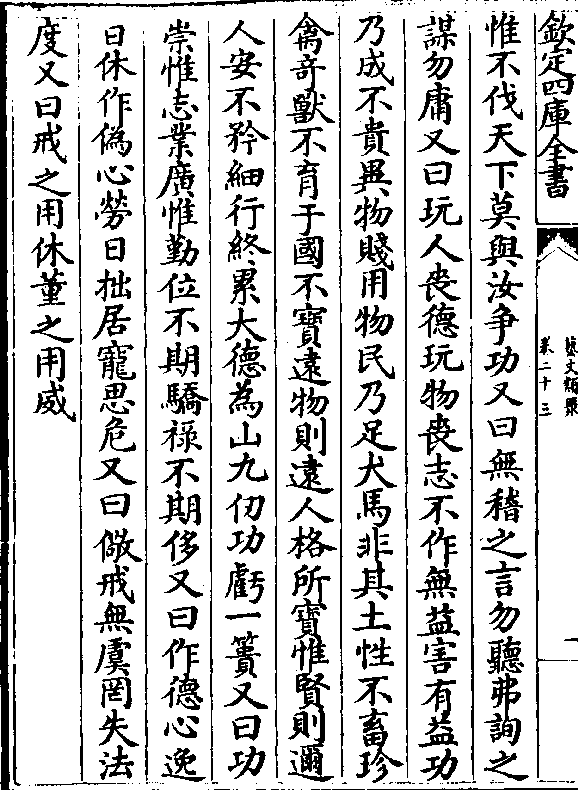 欽定四庫全書
藝文類聚
卷二十三
一
惟不伐天下莫與汝争功又曰無稽之言勿聽弗詢之
謀勿庸又曰玩人喪德玩物喪志不作無益害有益功
乃成不貴異物賤用物民乃足犬馬非其土性不畜珍
禽奇獸不育于國不寳遠物則遠人格所寳惟賢則邇
人安不矜細行終累大德為山九仞功虧一簣又曰功
崇惟志業廣惟勤位不期驕祿不期侈又曰作德心逸
日休作偽心勞日拙居寵思危又曰儆戒無虞罔失法
度又曰戒之用休董之用威